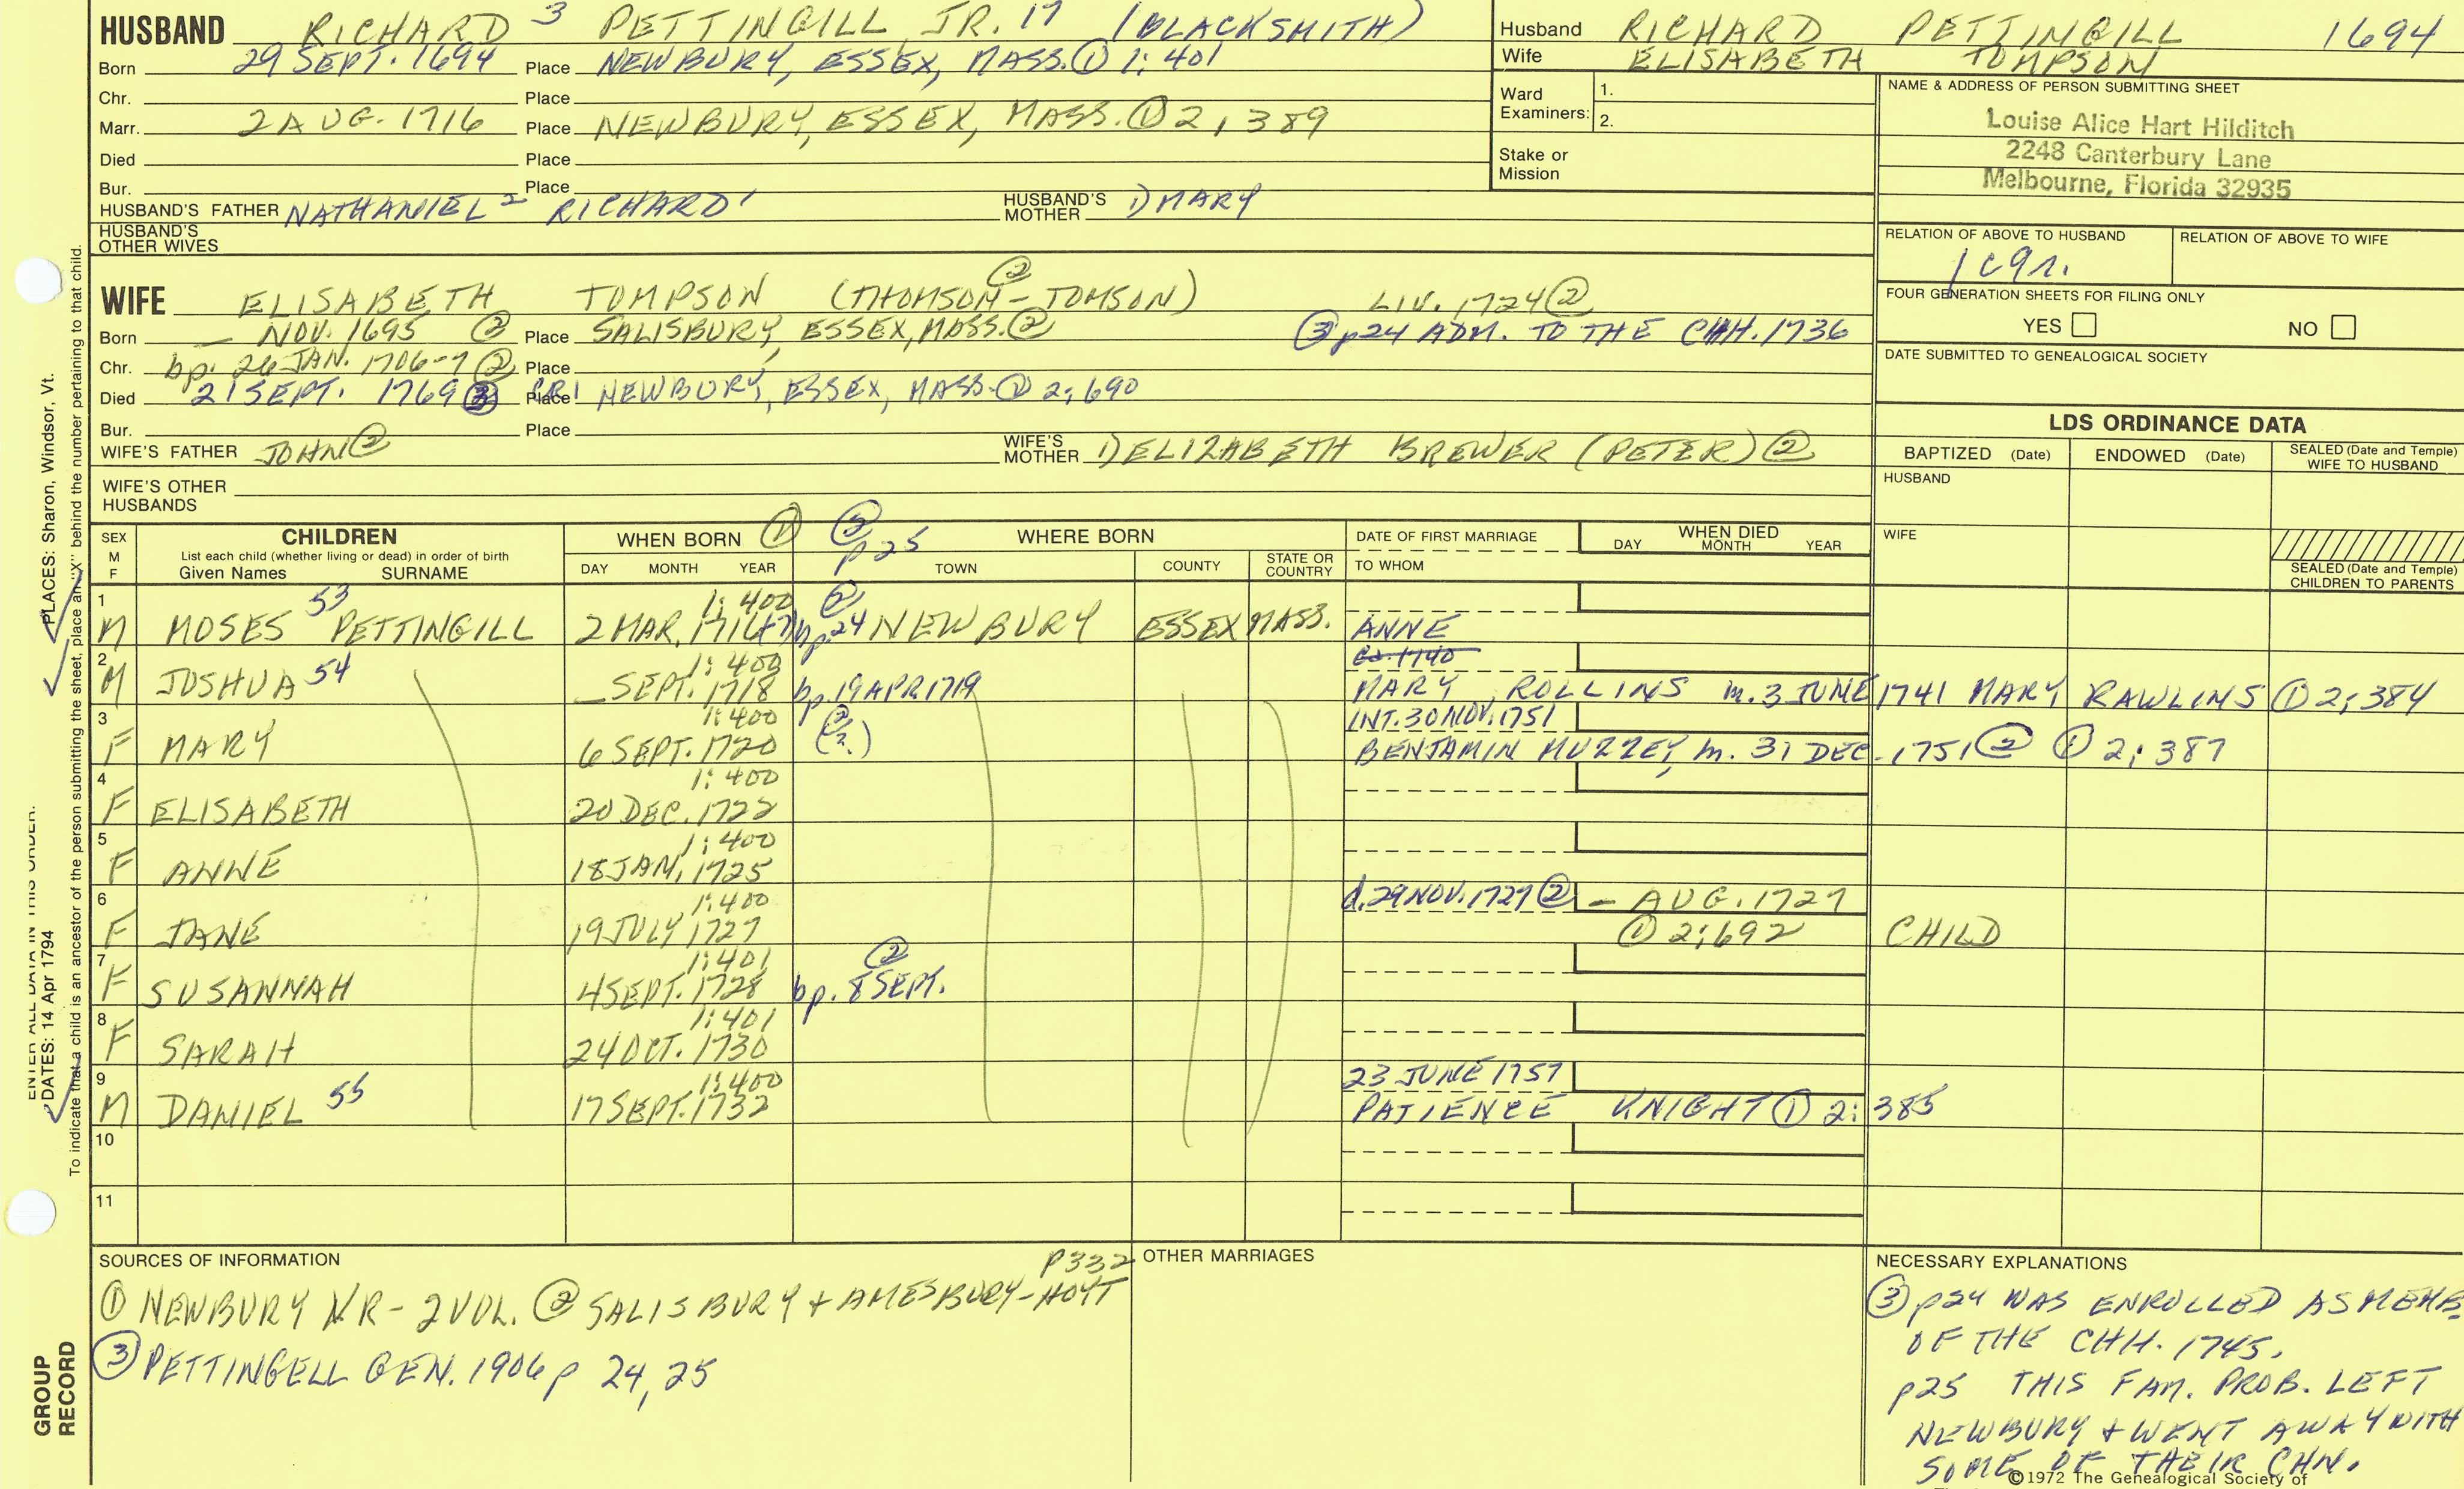 HUSBAND RICHARD 3 PETTINGILL, JR. 17 (BLACKSMITH)
Born 29 SEPT. 1694 Place NEWBURY, ESSEX, MASS. ① 1:401
Chr. Place
Marr. 2 AUG. 1716 Place NEWBURY, ESSEX, MASS. ① 2, 389
Died Place
Bur. Place
HUSBAND'S FATHER NATHANIEL 2 RICHARD 1 HUSBAND'S MOTHER 1) MARY
HUSBAND'S OTHER WIVES
Husband RICHARD PETTINGILL 1694
Wife ELISABETH TOMPSON
Ward Examiners: 1.
2.
Stake or Mission
NAME & ADDRESS OF PERSON SUBMITTING SHEET
Louise Alice Hart Hilditch
2248 Canterbury Lane
Melbourne, Florida 32935
RELATION OF ABOVE TO HUSBAND RELATION OF ABOVE TO WIFE
FOUR GENERATION SHEETS FOR FILING ONLY
YES NO
DATE SUBMITTED TO GENEALOGICAL SOCIETY
②
WIFE ELISABETH TOMPSON (THOMSON-TOMSON) LIV. 1724 ②
Born _ NOV. 1695 ② Place SALISBURY, ESSEX, MASS. ② ③ p24 ADM. TO THE CHH. 1736
Chr. bp. 26 JAN. 1706-7 ② Place
Died 21 SEPT. 1769 ③ Place CR1 NEWBURY, ESSEX, MASS. ① 2:690
Bur. Place
WIFE'S FATHER JOHN ② WIFE'S MOTHER 1) ELIZABETH BREWER (PETER) ②
WIFE'S OTHER HUSBANDS
LDS ORDINANCE DATA
BAPTIZED (Date) ENDOWED (Date) SEALED (Date and Temple) WIFE TO HUSBAND
HUSBAND
WIFE
SEALED (Date and Temple) CHILDREN TO PARENTS
SEX M F CHILDREN
List each child (whether living or dead) in order of birth
Given Names SURNAME
WHEN BORN ① DAY MONTH YEAR
p25 WHERE BORN TOWN COUNTY STATE OR COUNTRY
DATE OF FIRST MARRIAGE TO WHOM
WHEN DIED DAY MONTH YEAR
1 1:400 ②
M MOSES 53 PETTINGILL 2 MAR. 1716/7 bp. 24 NEWBURY ESSEX MASS. ANNE
2 1:400 ca. 1740
M JOSHUA 54 _ SEPT. 1718 bp. 19 APR 1719 MARY ROLLINS m. 3 JUNE 1741 MARY RAWLINS ① 2:384
3 1:400 INT. 30 NOV. 1751
F MARY 6 SEPT. 1720 (?) BENJAMIN MUZZEY, m. 31 DEC. 1751 ② ① 2:387
4 1:400
F ELISABETH 20 DEC. 1722
5 1:400
F ANNE 18 JAN. 1725
6 1:400 d. 29 NOV. 1727 ② – AUG. 1727
F JANE 19 JULY 1727 ① 2:692 CHILD
7 1:401 ②
F SUSANNAH 4 SEPT. 1728 bp. 8 SEPT.
8 1:401
F SARAH 24 OCT. 1730
9 1:400 23 JUNE 1757
M DANIEL 55 17 SEPT. 1732 PATIENCE KNIGHT ① 2:385
10
11
SOURCES OF INFORMATION p332
① NEWBURY VR - 2 VOL. ② SALISBURY + AMESBURY - HOYT
③ PETTINGELL GEN. 1906 p 24, 25
OTHER MARRIAGES
NECESSARY EXPLANATIONS
③ p24 WAS ENROLLED AS MEMB.
OF THE CHH. 1745.
p25 THIS FAM. PROB. LEFT
NEWBURY + WENT AWAY WITH
SOME OF THEIR CHN.
©1972 The Genealogical Society of
PLACES: Sharon, Windsor, Vt.
To indicate that a child is an ancestor of the person submitting the sheet, place an "X" behind the number pertaining to that child.
ENTER ALL DATA IN THIS ORDER:
DATES: 14 Apr 1794
GROUP RECORD